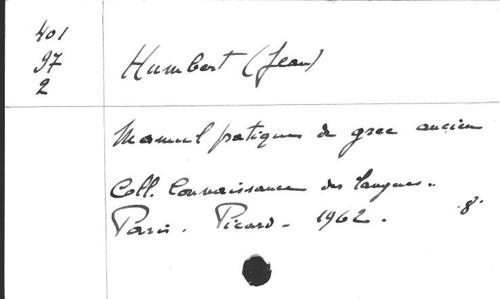 401
97
2
Humbert (Jean)
Manuel pratique de grec ancien
Coll. Connaissance des langues.
Paris. Picard. 1962. 8°